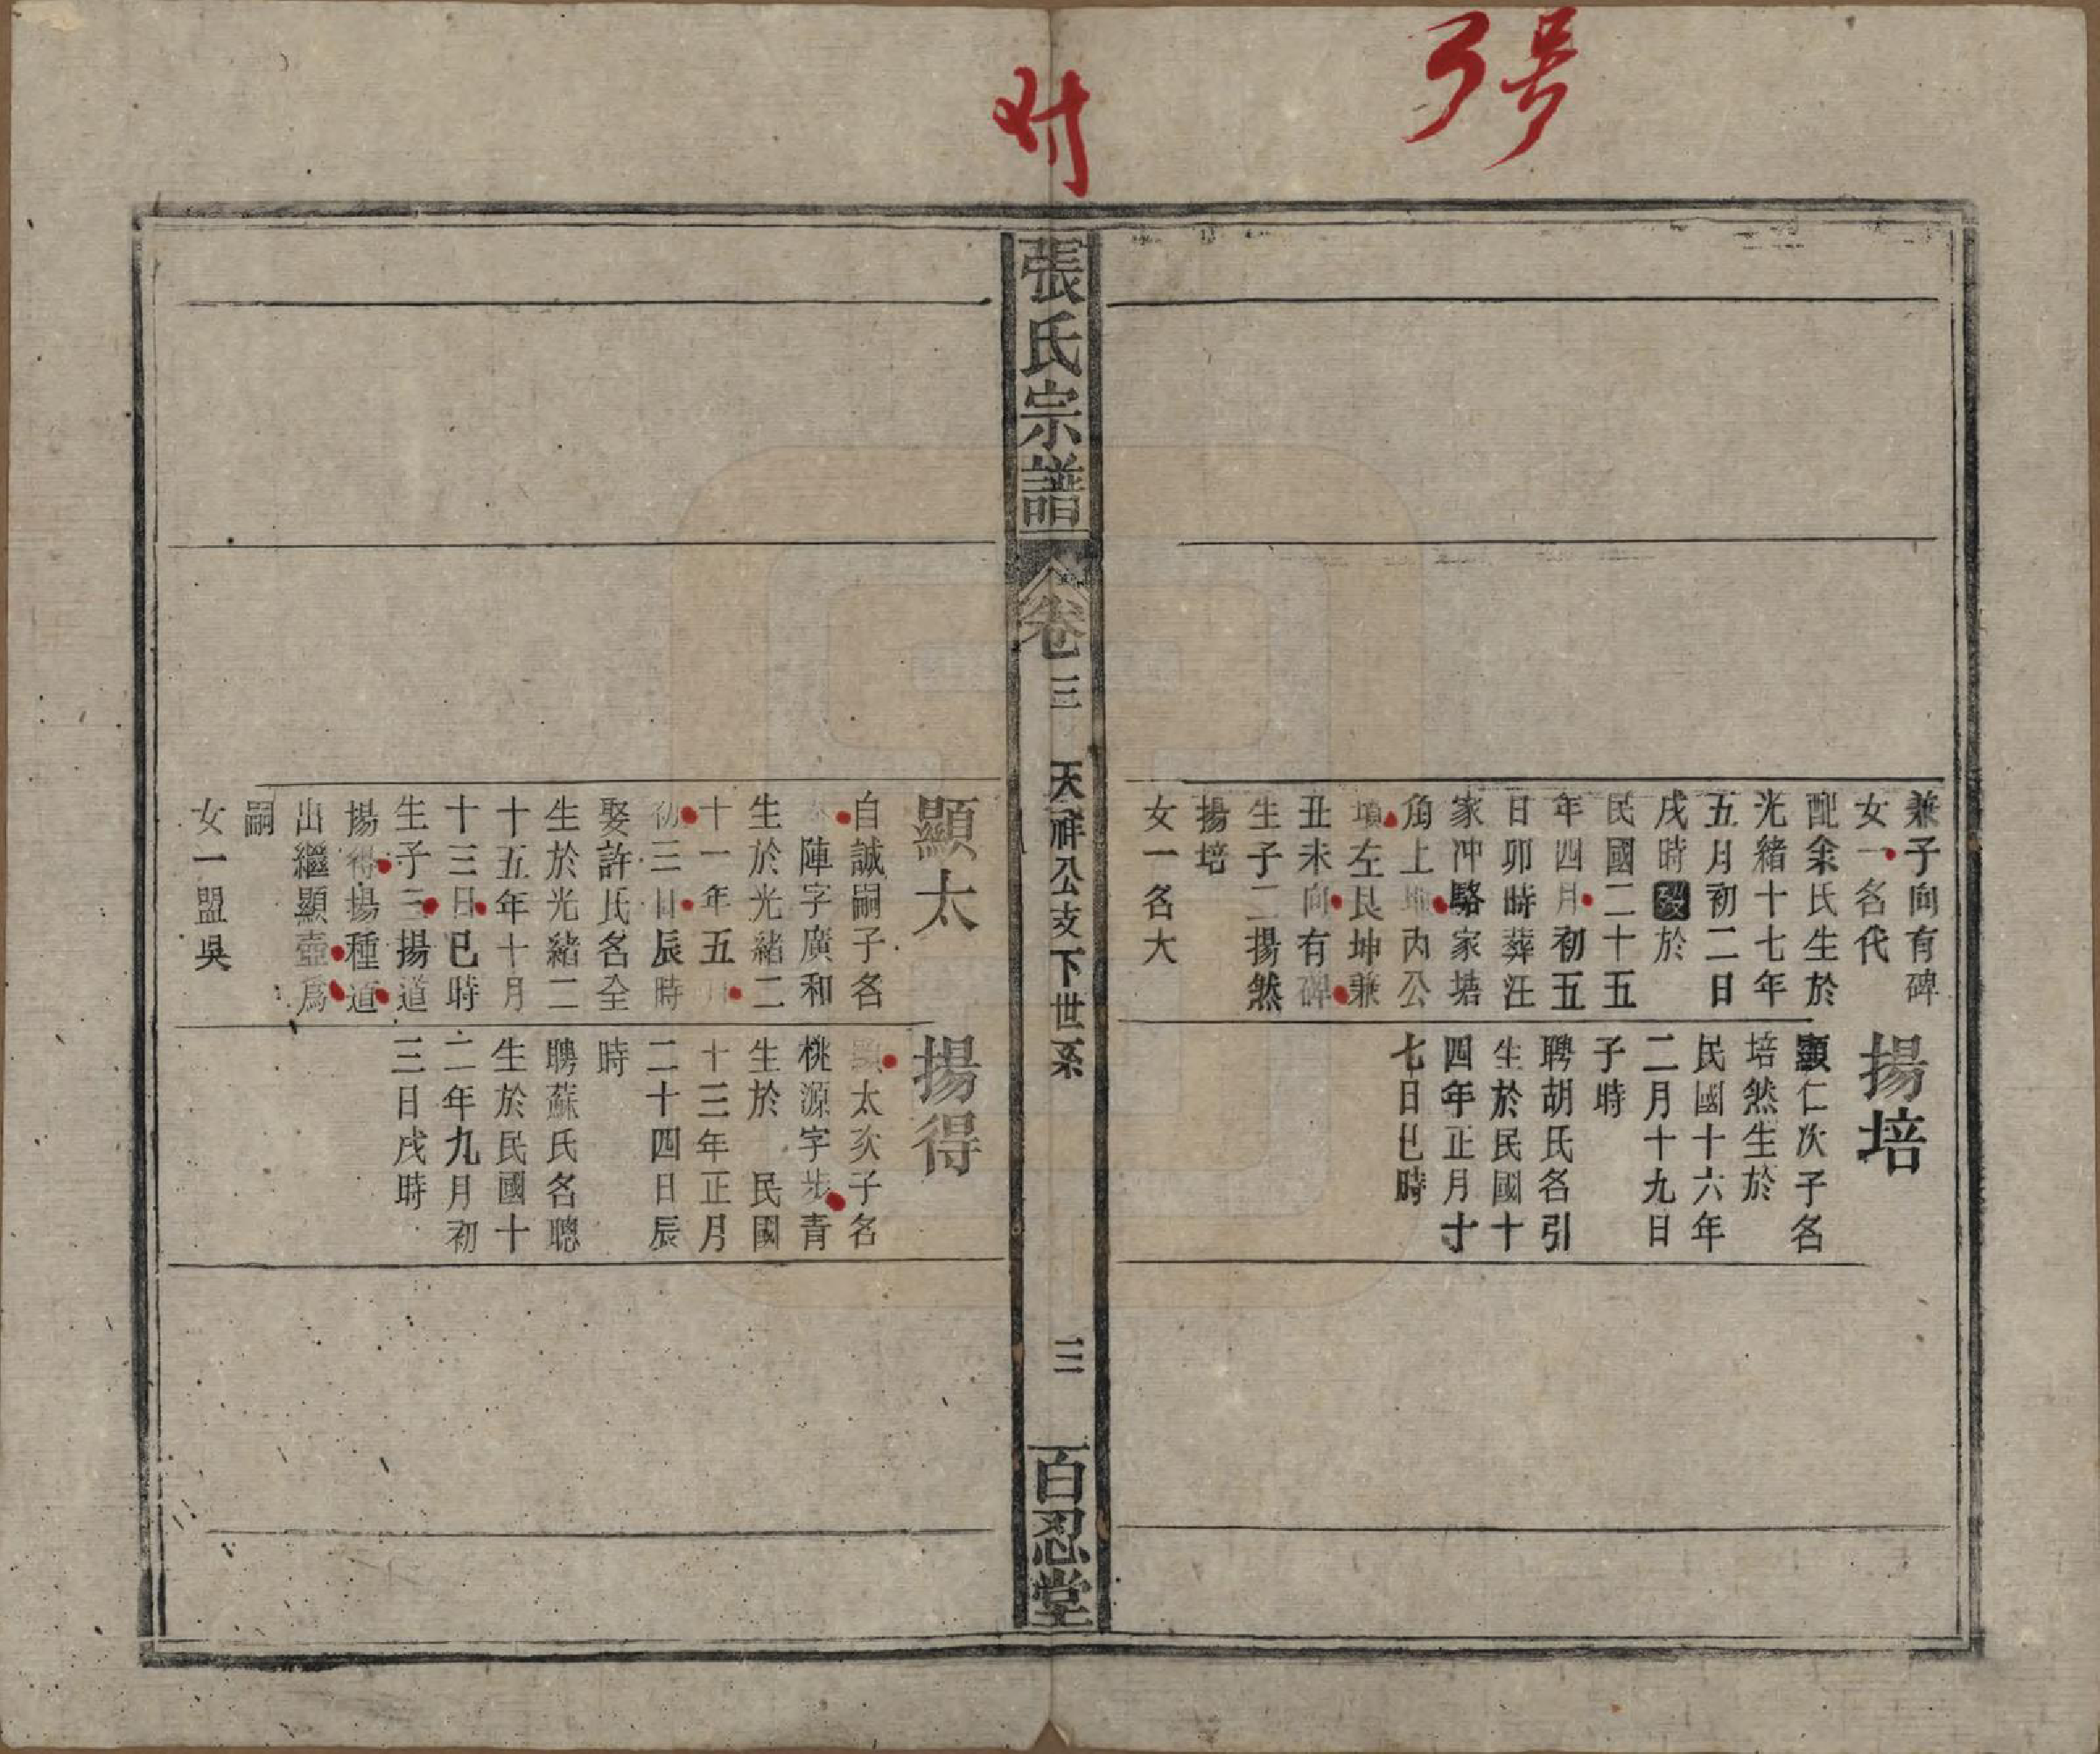 3号
附
兼子向有碑
女一名代
配余氏生於
光緒十七年
五月初二日
戌時歿於
民國二十五
年四月初五
日卯時葬汪
家冲駱家塘
角上地內公
墳左艮坤兼
丑未向有碑
生子二揚然
揚培
女一名大
揚培
顯仁次子名
培然生於
民國十六年
二月十九日
子時
聘胡氏名引
生於民國十
四年正月十
七日巳時
張氏宗譜
卷三
天祥公支下世系
三
百忍堂
顯太
白誠嗣子名
陣字廣和
生於光緒二
十一年五月
初三日辰時
娶許氏名全
生於光緒二
十五年十月
十三日巳時
生子三揚道
揚得揚種道
出繼顯壺爲
嗣
女一盟吳
揚得
顯太次子名
桃源字步青
生於 民國
十三年正月
二十四日辰
時
聘蘇氏名聰
生於民國十
二年九月初
三日戌時